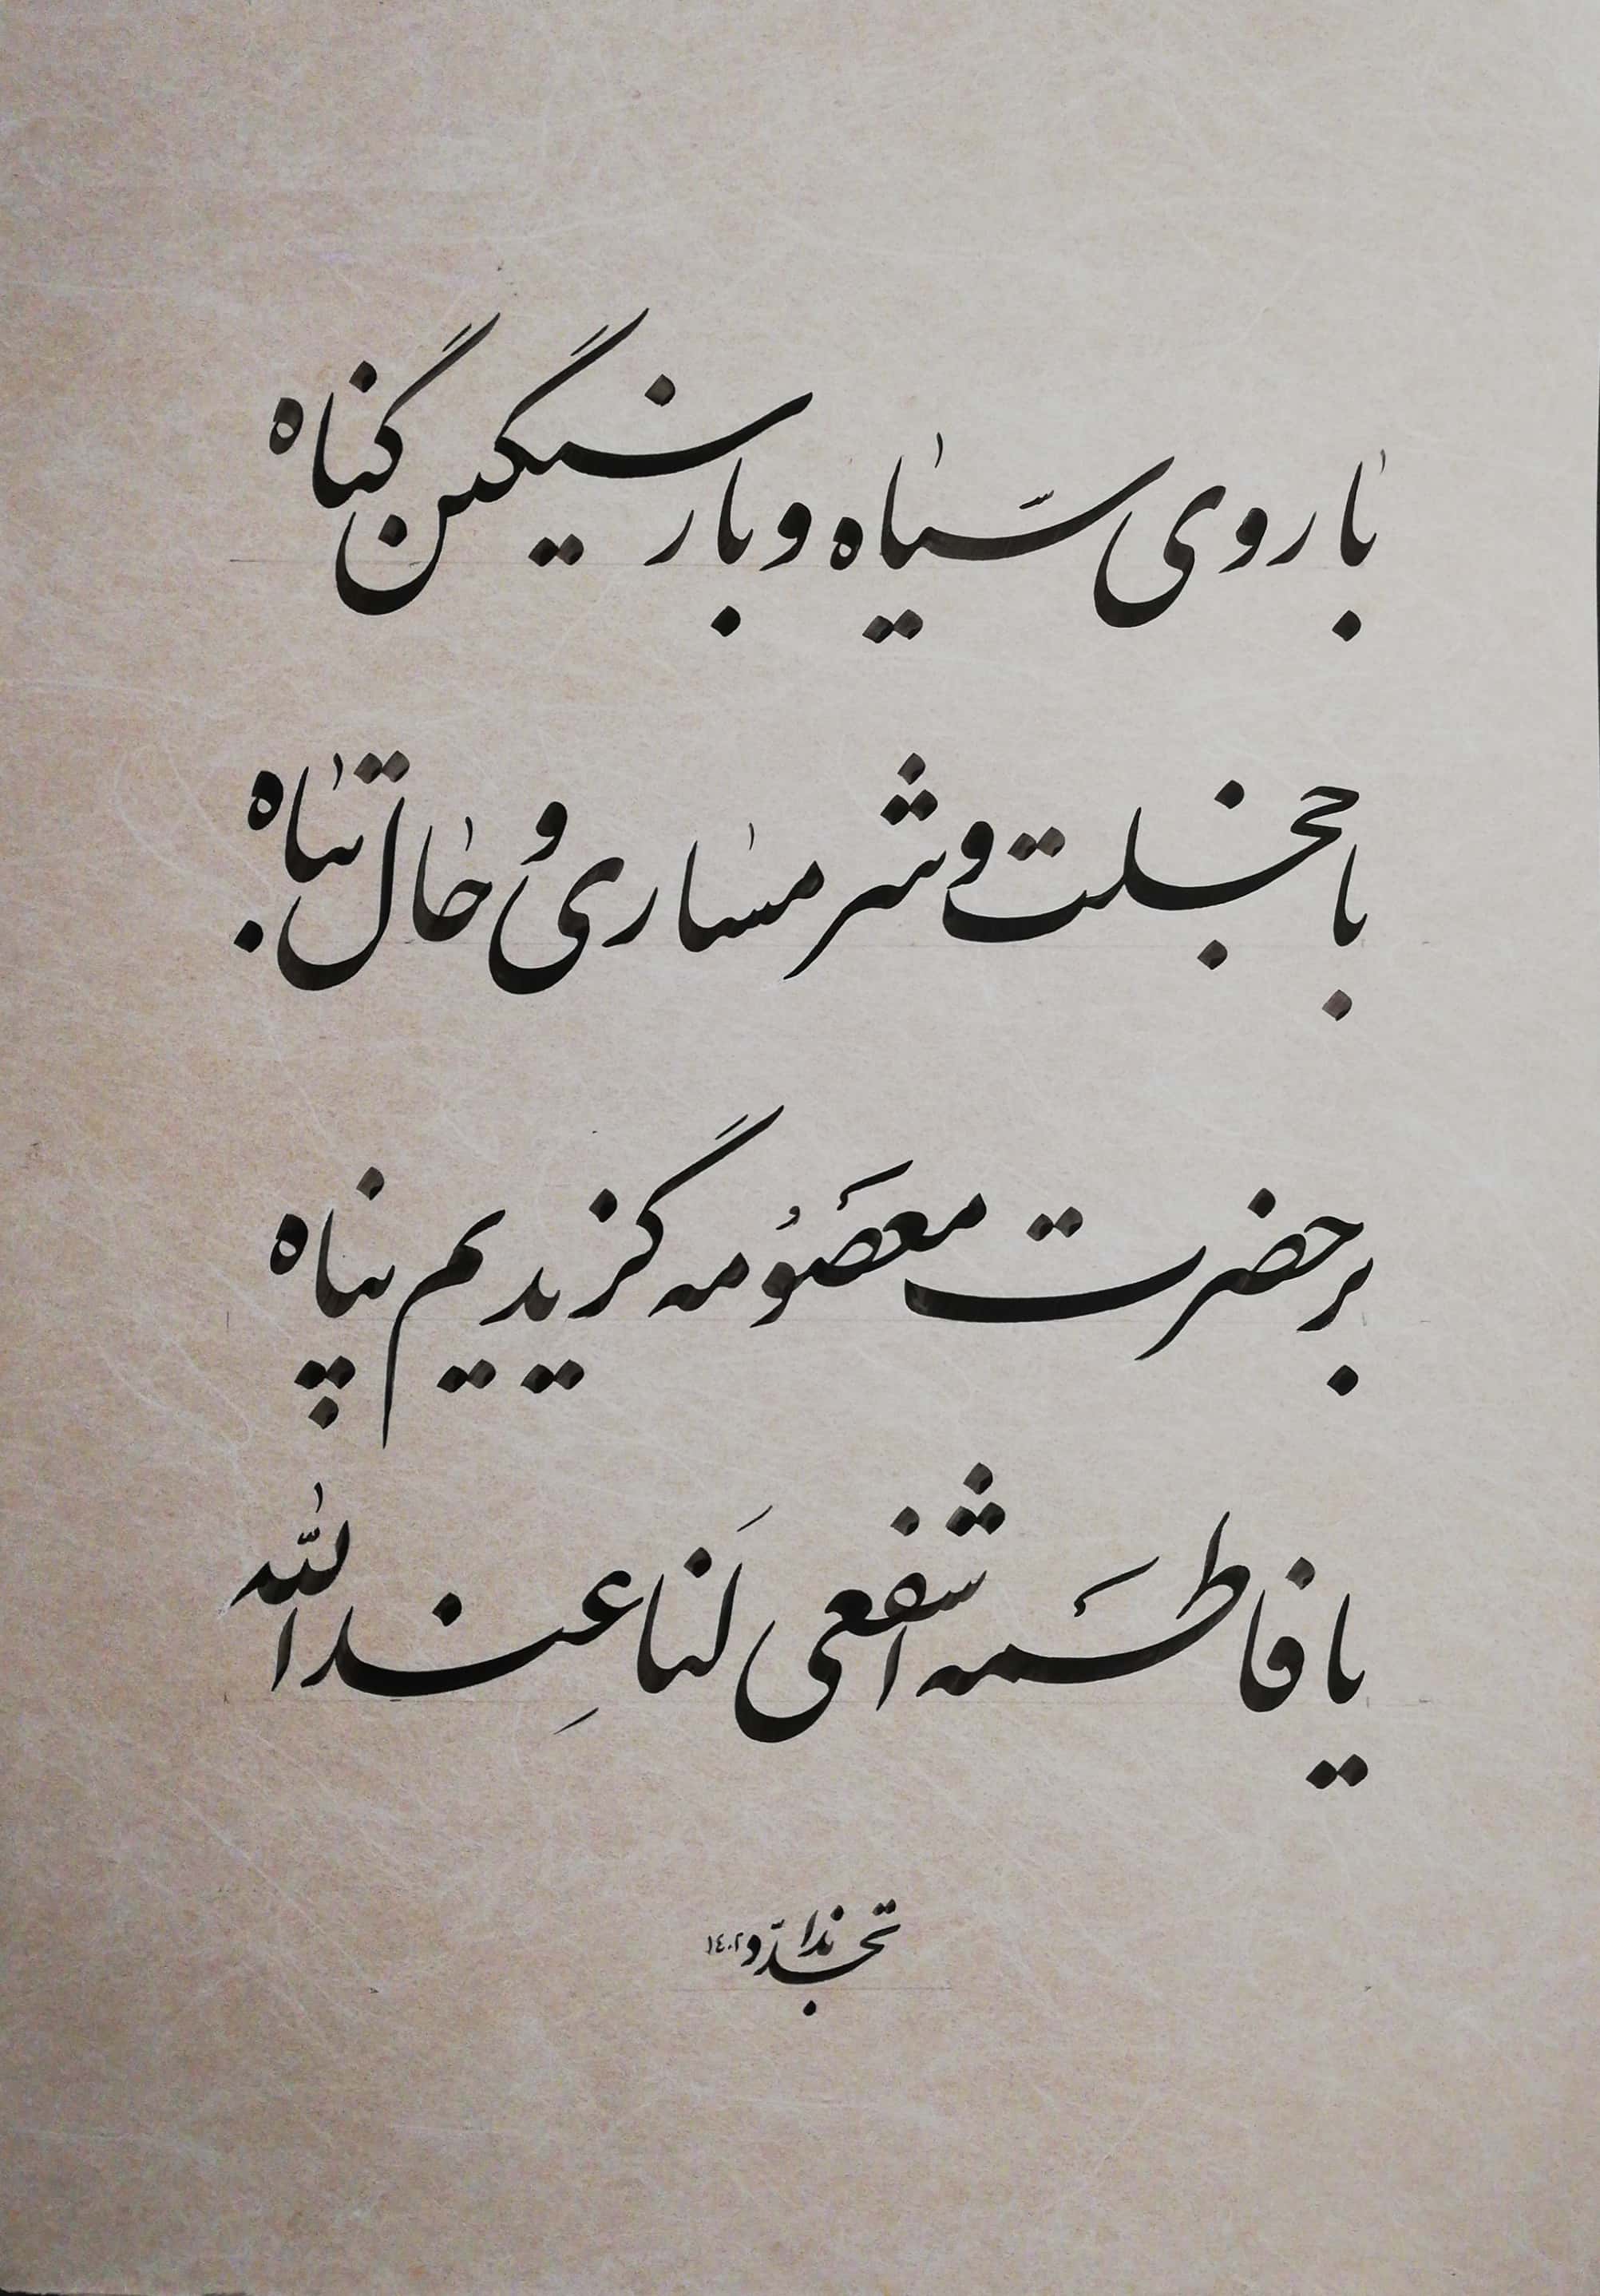 با روی سیاه و بار سنگین گناه
با خجلت و شرمساری و حال تباه
بر حضرت معصومه گزیدیم پناه
یا فاطمه اشفعی لنا عند الله
ندا تجدد ۱۴۰۲